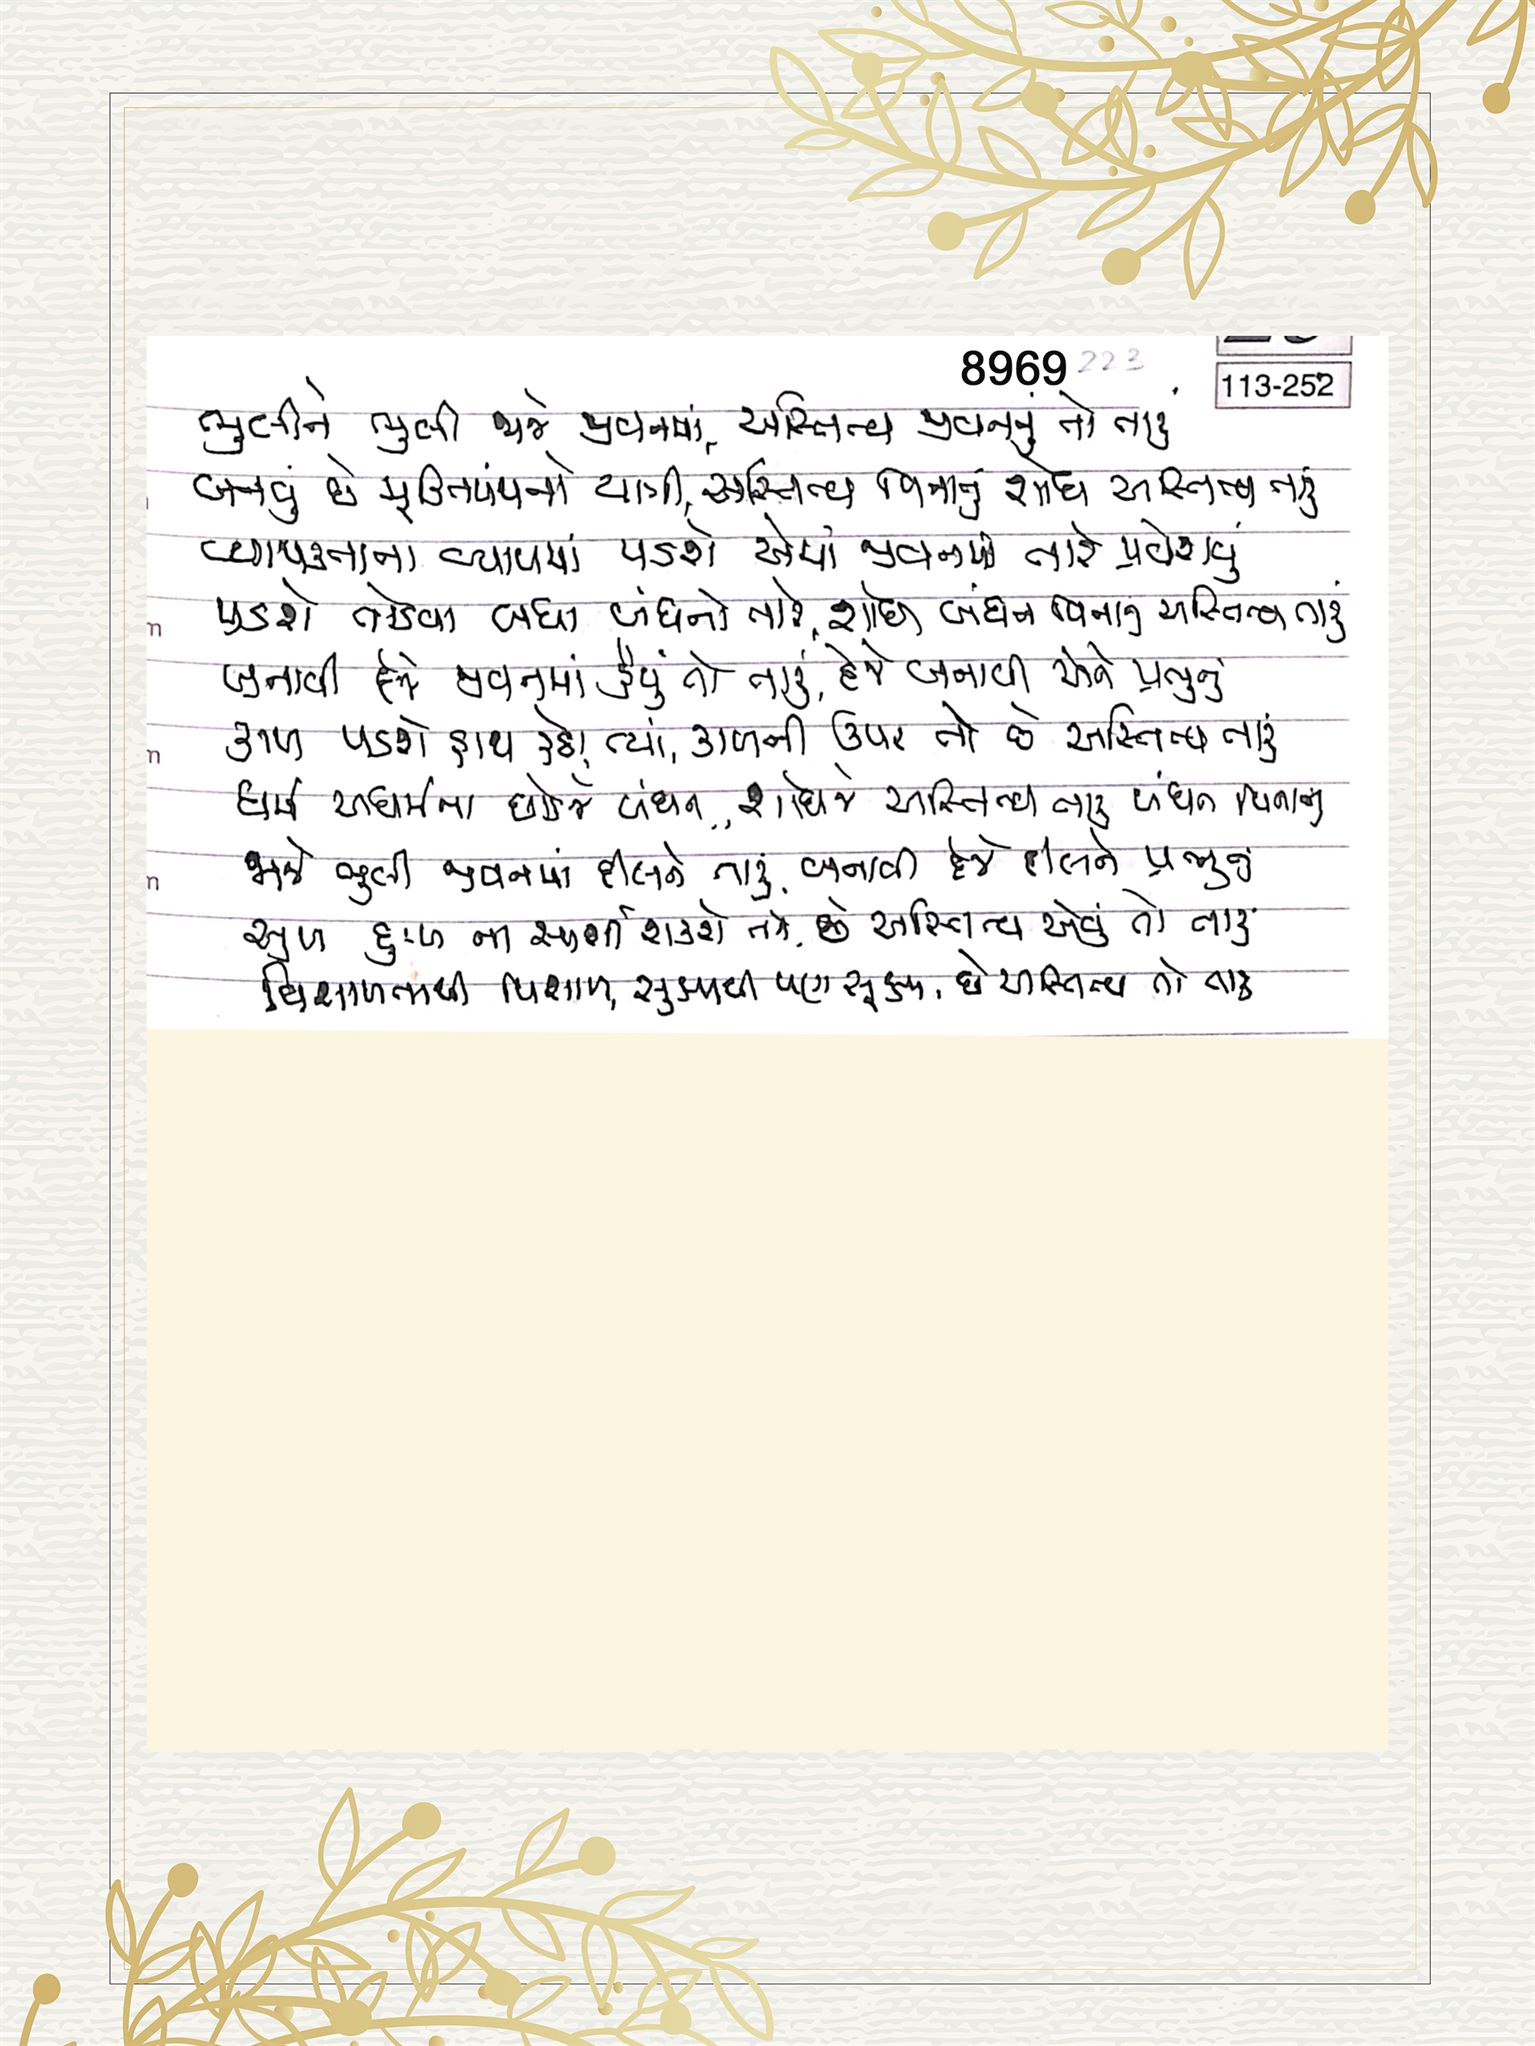 8969 223
113-252
ભુલીને ભુલી જાજે જીવનમાં, અસ્તિત્વ જીવનનું તો તારું
બનવું છે મુક્તિપંથનો યાત્રી, અસ્તિત્વ વિનાનું શોધ અસ્તિત્વ તારું
વ્યાપકતાના વ્યાપમાં પડશે એમાં જીવનમાં તારે પ્રવેશવું
પડશે તોડવા બધા બંધનો તારે, શોધ બંધન વિનાનુ અસ્તિત્વ તારું
બનાવી દેજે જીવનમાં હૈયું તો તારું, દેજે બનાવી એને પ્રભુનું
કાળ પડશે હાથ હેઠો ત્યાં, કાળની ઉપર તો છે અસ્તિત્વ તારું
ધર્મ અધર્મના છોડજે બંધન, શોધજે અસ્તિત્વ તારુ બંધન વિનાનુ
જાજે ભુલી જીવનમાં દીલને તારું, બનાવી દેજે દીલને પ્રભુનું
સુખ દુઃખ ના સ્પર્શી શકશે તને, છે અસ્તિત્વ એવું તો તારું
વિશાળતાથી વિશાળ, સુક્ષ્મથી પણ સૂક્ષ્મ, છે અસ્તિત્વ તો તારુ